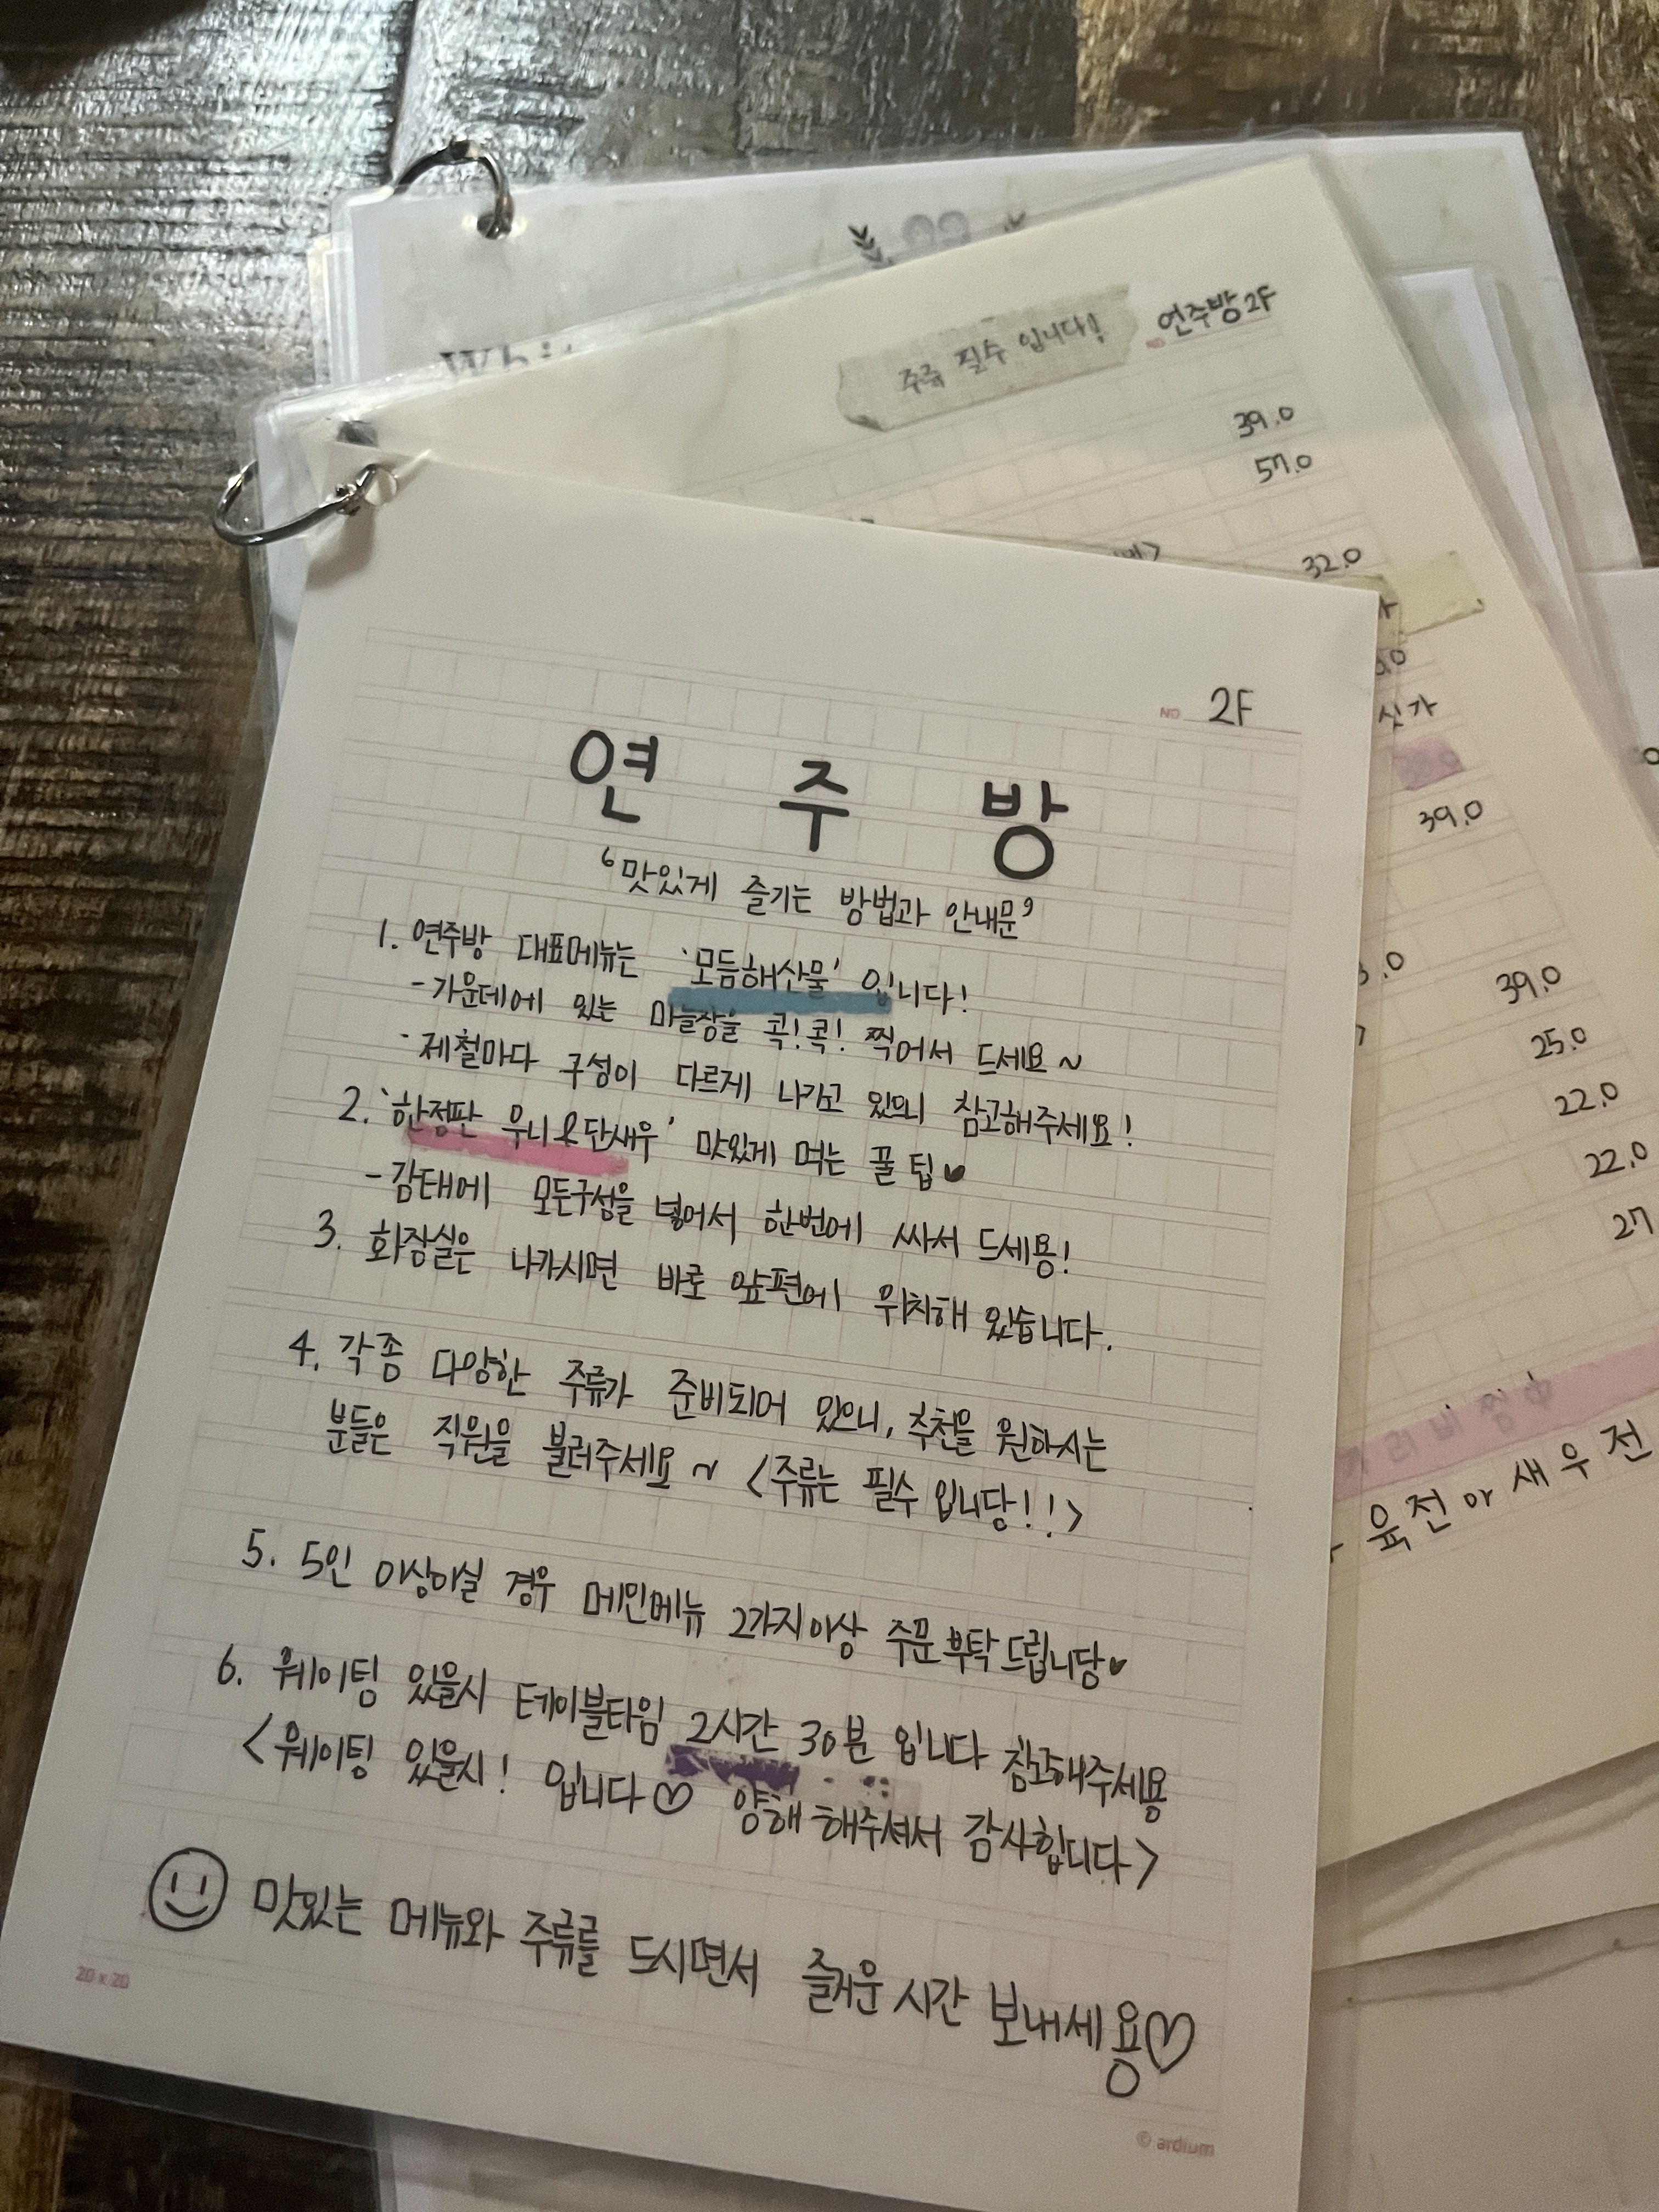 주류 필수 입니다!
연주방 2F
39.0
57.0
32.0
신가
39.0
39.0
25.0
22.0
22.0
27
육전아새우전
NO 2F
연 주 방
'맛있게 즐기는 방법과 안내문'
1. 연주방 대표메뉴는 '모듬해산물' 입니다!
- 가운데에 있는 마늘장을 콕!콕! 찍어서 드세요~
- 제철마다 구성이 다르게 나가고 있으니 참고해주세요!
2. '한정판 우니&단새우' 맛있게 먹는 꿀팁♥
- 감태에 모든구성을 넣어서 한번에 싸서 드세용!
3. 화장실은 나가시면 바로 앞편에 위치해 있습니다.
4. 각종 다양한 주류가 준비되어 있으니, 추천을 원하시는
분들은 직원을 불러주세요~ <주류는 필수 입니당!!>
5. 5인 이상이실 경우 메인메뉴 2가지이상 주문부탁드립니당♥
6. 웨이팅 있을시 테이블타임 2시간 30분 입니다 참고해주세용
<웨이팅 있을시! 입니다♡ 양해 해주셔서 감사합니다>
맛있는 메뉴와 주류를 드시면서 즐거운 시간 보내세용♡
20 x 20
© ardium